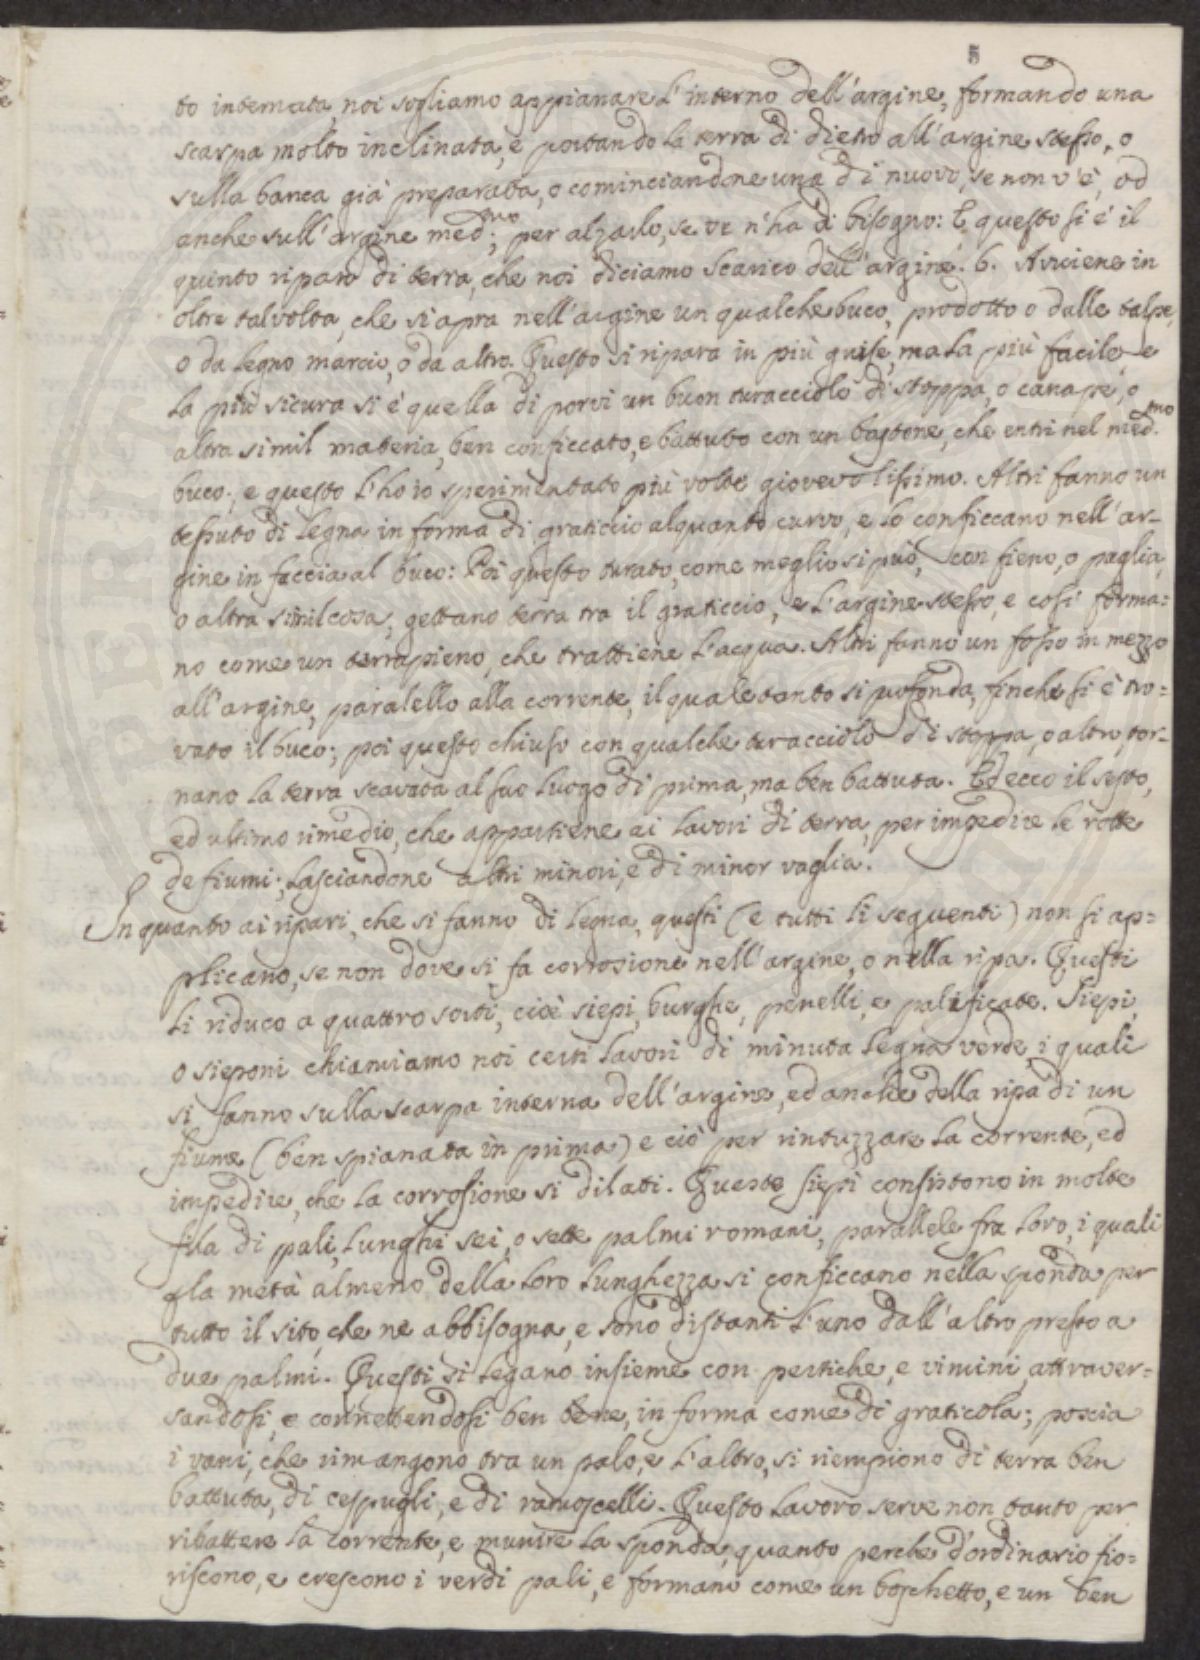 5
to internata, noi sogliamo appianare l'interno dell'argine, formando una
scarpa molto inclinata, e portando la terra di dietro all'argine stesso, o
sulla banca già preparata, o cominciandone una di nuovo, se non v'è, od
anche sull'argine med:mo, per alzarlo, se ve n'ha di bisogno: E questo si è il
quinto riparo di terra, che noi diciamo Scarico dell'argine. 6. Avviene in
oltre talvolta, che si apra nell'argine un qualche buco, prodotto o dalle talpe,
o da legno marcio, o da altro. Questo si ripara in più guise, ma la più facile, e
la più sicura si è quella di porvi un buon turacciolo di stoppa, o canape, o
altra simil materia, ben conficcato, e battuto con un bastone, che entri nel med:mo
buco; e questo l'ho io sperimentato più volte giovevolissimo. Altri fanno un
tessuto di legna in forma di graticcio alquanto curvo, e lo conficcano nell'ar-
gine in faccia al buco: Poi questo turato, come meglio si può, con fieno, o paglia,
o altra simil cosa, gettano terra tra il graticcio, e l'argine stesso, e così forma=
no come un terrapieno, che trattiene l'acqua. Altri fanno un fosso in mezzo
all'argine, paralello alla corrente, il quale tanto si profonda, finche si è tro=
vato il buco; poi questo chiuso con qualche turacciolo di stoppa, o altro, tor-
nano la terra scavata al suo luogo di prima, ma ben battuta. Ed ecco il sesto,
ed ultimo rimedio, che appartiene ai lavori di terra, per impedire le rotte
de fiumi; lasciandone altri minori, e di minor vaglia.
In quanto ai ripari, che si fanno di legna, questi (e tutti li seguenti) non si ap=
plicano, se non dove si fa corrosione nell'argine, o nella ripa. Questi
li riduco a quattro sorti, cioè siepi, burghe, penelli, e palificate. Siepi,
o sieponi chiamiamo noi certi lavori di minuta legna verde, i quali
si fanno sulla scarpa interna dell'argine, ed anche della ripa di un
fiume (ben spianata in prima) e ciò per rintuzzare la corrente, ed
impedire, che la corrosione si dilati. Queste siepi consistono in molte
fila di pali, lunghi sei, o sette palmi romani, parallele fra loro, i quali
p la metà almeno della loro lunghezza si conficcano nella sponda per
tutto il sito, che ne abbisogna, e sono distanti l'uno dall'altro presso a
due palmi. Questi si legano insieme con pertiche, e vimini, attraver=
sandosi, e connettendosi ben bene, in forma come di graticola; poscia
i vani, che rimangono tra un palo, e l'altro, si riempiono di terra ben
battuta, di cespugli, e di ramoscelli. Questo lavoro serve non tanto per
ribattere la corrente, e munire la sponda, quanto perche d'ordinario fio=
riscono, e crescono i verdi pali, e formano come un boschetto, e un ben